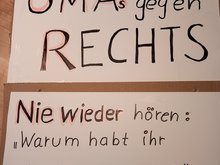 OMAs gegen
RECHTS
Nie wieder hören:
„Warum habt ihr